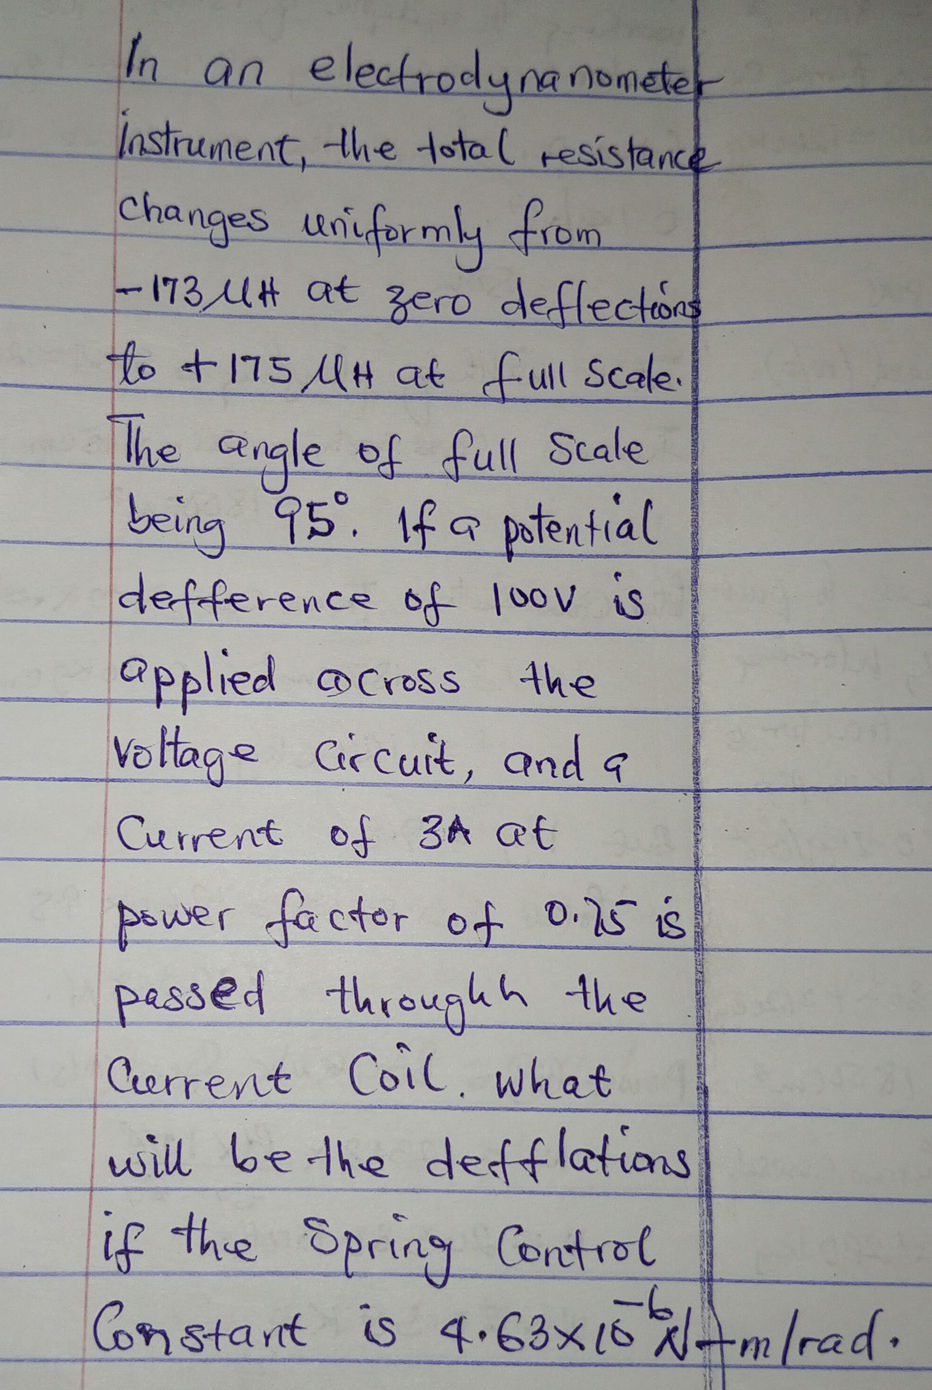 In an electrodynanometer
instrument, the total resistance
changes uniformly from
-173 μH at zero deflections
to +175 μH at full scale.
The angle of full scale
being 95°. If a potential
defference of 100V is
applied across the
voltage circuit, and a
current of 3A at
power factor of 0.75 is
passed throughh the
current coil. what
will be the defflations
if the spring control
constant is 4.63x10⁻⁶ N-m/rad.